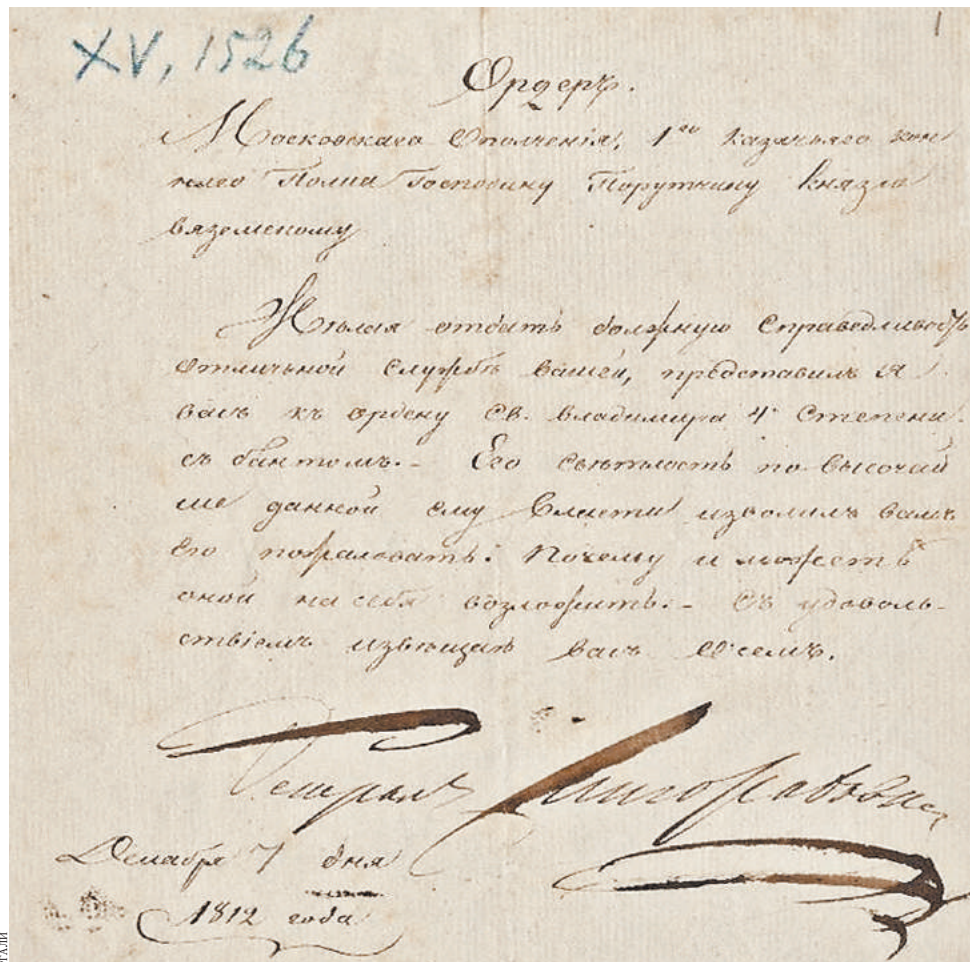 XV, 1526
1
Ордеръ.
Московскаго Ополченія, 1го казачьяго кон
наго Полка Господину Порутчику Князю
вяземскому
Желая отдать должную Справедливость
отличной службѣ вашей, представилъ я
васъ къ ордену Св. владимира 4й Степени
съ бантомъ. - Его свѣтлость по высочай
ше данной ему власти изволилъ вамъ
его пожаловать: почему и можете
оной на себя возложить: - Съ удоволь-
ствіемъ извѣщаю васъ о семъ.
Генералъ Милорадовичь
Декабря 7 дня
1812 года
ТАЛИ